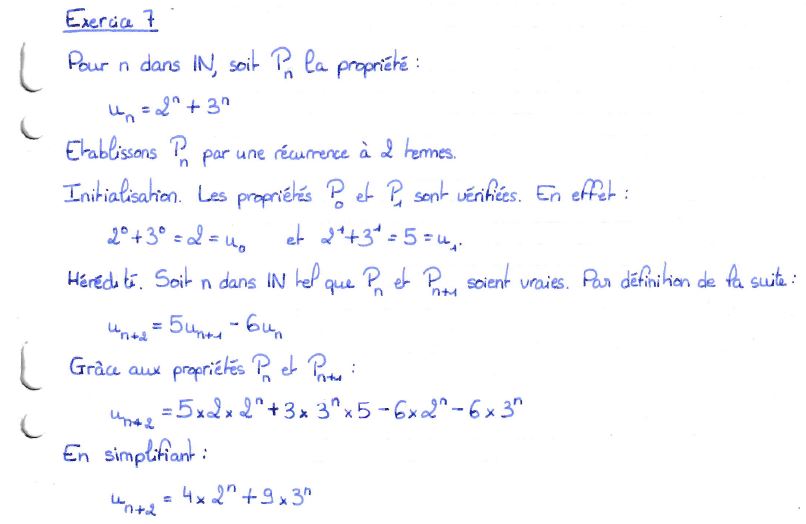 Exercice 7
Pour n dans IN, soit Pₙ la propriété :
uₙ = 2ⁿ + 3ⁿ
Etablissons Pₙ par une récurrence à 2 termes.
Initialisation. Les propriétés P₀ et P₁ sont vérifiées. En effet :
2⁰ + 3⁰ = 2 = u₀ et 2¹ + 3¹ = 5 = u₁.
Hérédité. Soit n dans IN tel que Pₙ et Pₙ₊₁ soient vraies. Par définition de la suite :
uₙ₊₂ = 5uₙ₊₁ - 6uₙ
Grâce aux propriétés Pₙ et Pₙ₊₁ :
uₙ₊₂ = 5 × 2 × 2ⁿ + 3 × 3ⁿ × 5 - 6 × 2ⁿ - 6 × 3ⁿ
En simplifiant :
uₙ₊₂ = 4 × 2ⁿ + 9 × 3ⁿ